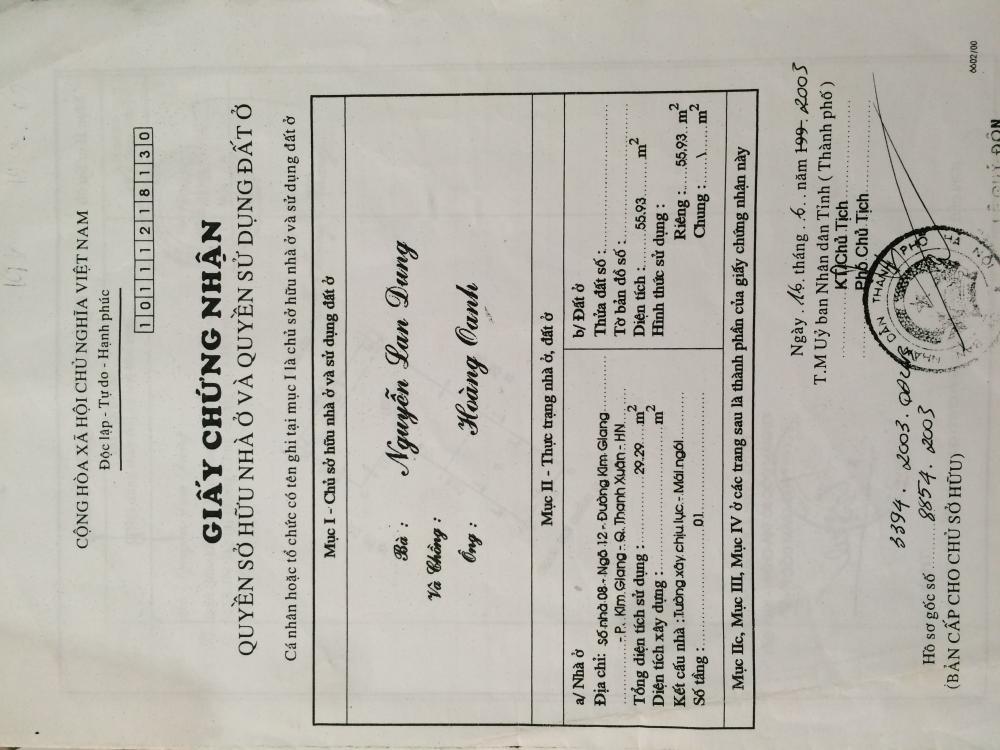 CỘNG HÒA XÃ HỘI CHỦ NGHĨA VIỆT NAM
Độc lập - Tự do - Hạnh phúc
10111218130
GIẤY CHỨNG NHẬN
QUYỀN SỞ HỮU NHÀ Ở VÀ QUYỀN SỬ DỤNG ĐẤT Ở
Cá nhân hoặc tổ chức có tên ghi tại mục I là chủ sở hữu nhà ở và sử dụng đất ở
Mục I - Chủ sở hữu nhà ở và sử dụng đất ở
Bà : Nguyễn Lan Dung
Và Chồng :
Ông : Hoàng Oanh
Mục II - Thực trạng nhà ở, đất ở
a/ Nhà ở
Địa chỉ: Số nhà 08 - Ngõ 12 - Đường Kim Giang
- P. Kim Giang - Q. Thanh Xuân - HN
Tổng diện tích sử dụng : 29.29 m2
Diện tích xây dựng : m2
Kết cấu nhà : Tường xây chịu lực - Mái ngói
Số tầng : 01
b/ Đất ở
Thửa đất số :
Tờ bản đồ số :
Diện tích : 55.93 m2
Hình thức sử dụng :
Riêng : 55.93 m2
Chung : \ m2
Mục IIc, Mục III, Mục IV ở các trang sau là thành phần của giấy chứng nhận này
Ngày 16 tháng 6 năm 199 2003
T.M Uỷ ban Nhân dân Tỉnh ( Thành phố )
KT Chủ Tịch
Phó Chủ Tịch
NHÂN DÂN THÀNH PHỐ HÀ NỘI
3394. 2003.
Hồ sơ gốc số 8854. 2003
(BẢN CẤP CHO CHỦ SỞ HỮU)
6602/00